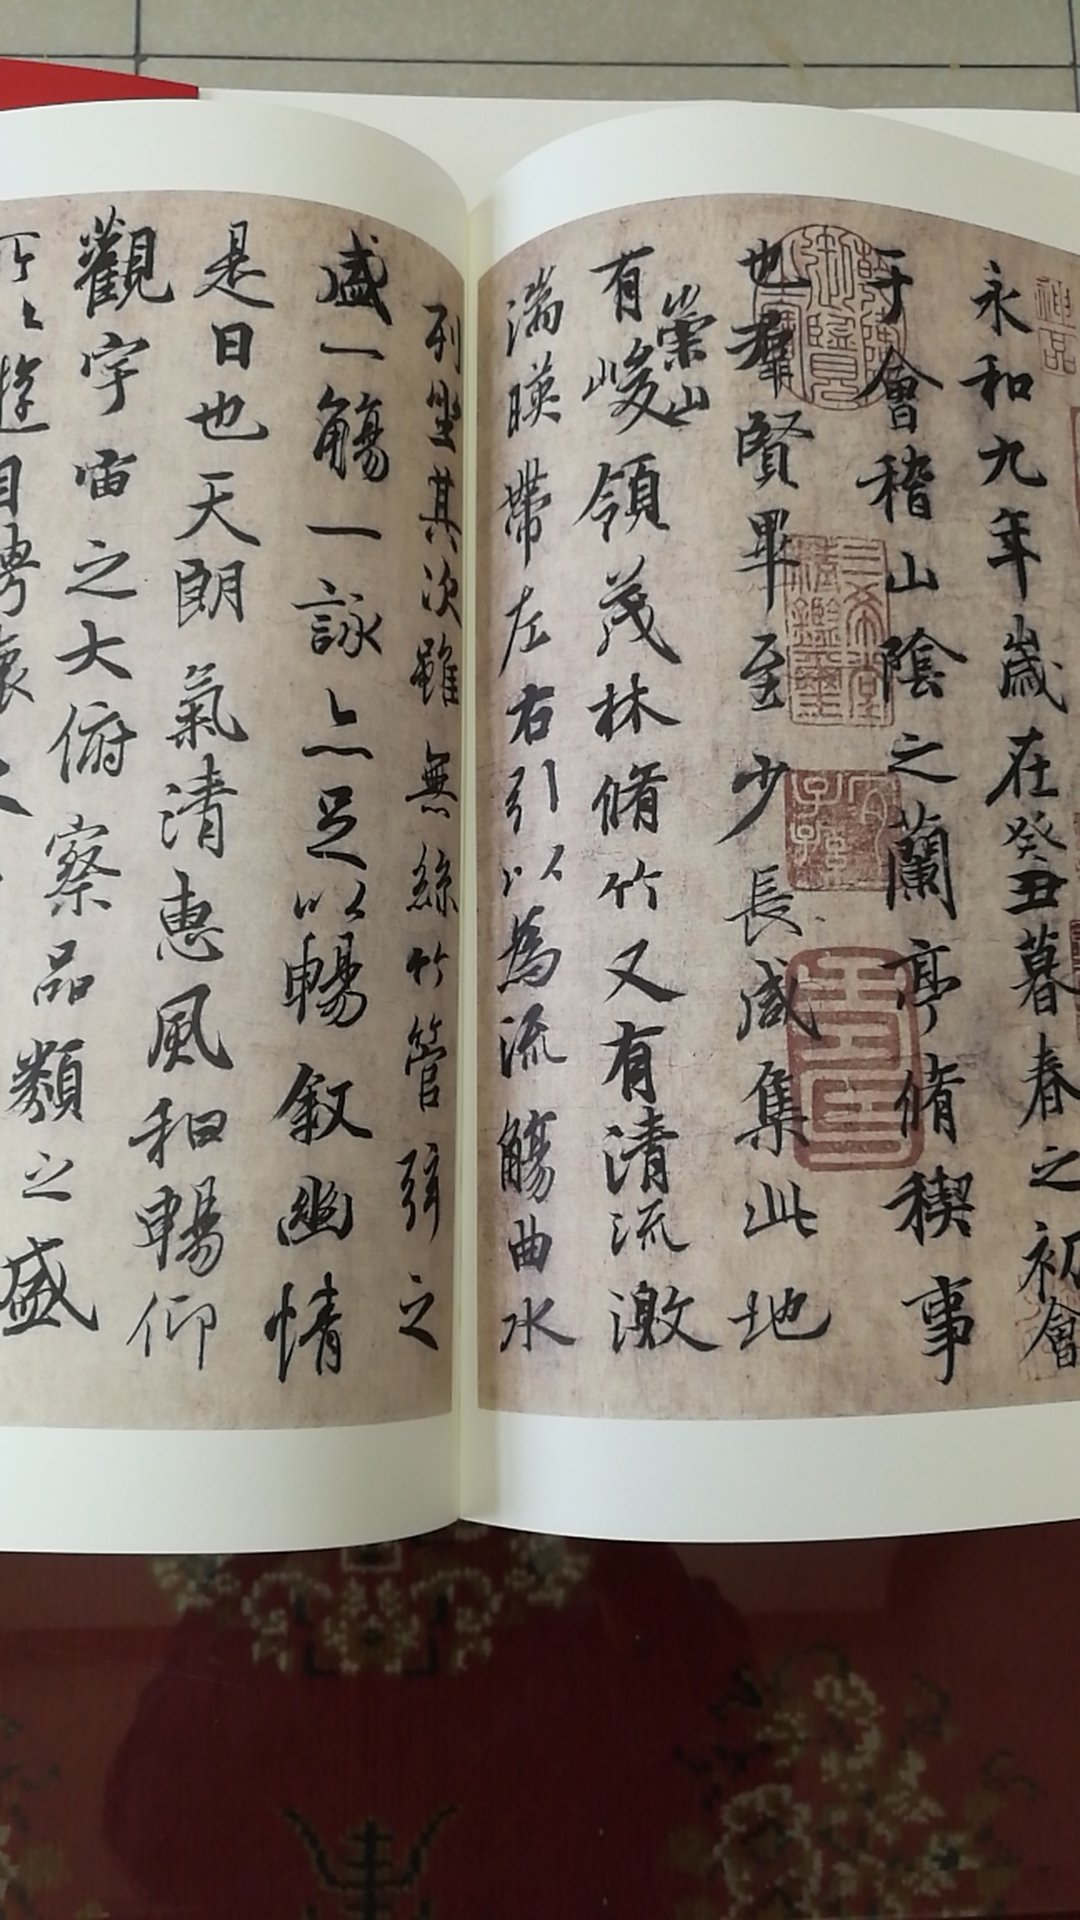 永和九年歲在癸丑暮春之初會
于會稽山陰之蘭亭脩稧事
也羣賢畢至少長咸集此地
有崇山峻領茂林脩竹又有清流激
湍暎帶左右引以為流觴曲水
列坐其次雖無絲竹管弦之
盛一觴一詠亦足以暢敘幽情
是日也天朗氣清惠風和暢仰
觀宇宙之大俯察品類之盛
所以遊目騁懷
神品
乾隆御覽之寶
三希堂精鑑璽
宜子孫